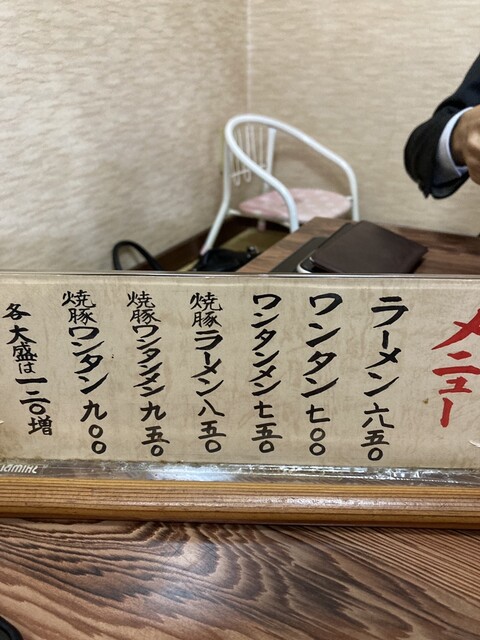 メニュー
ラーメン 六五〇
ワンタン 七〇〇
ワンタンメン 七五〇
焼豚ラーメン 八五〇
焼豚ワンタンメン 九五〇
焼豚ワンタン 九〇〇
各大盛は一二〇増